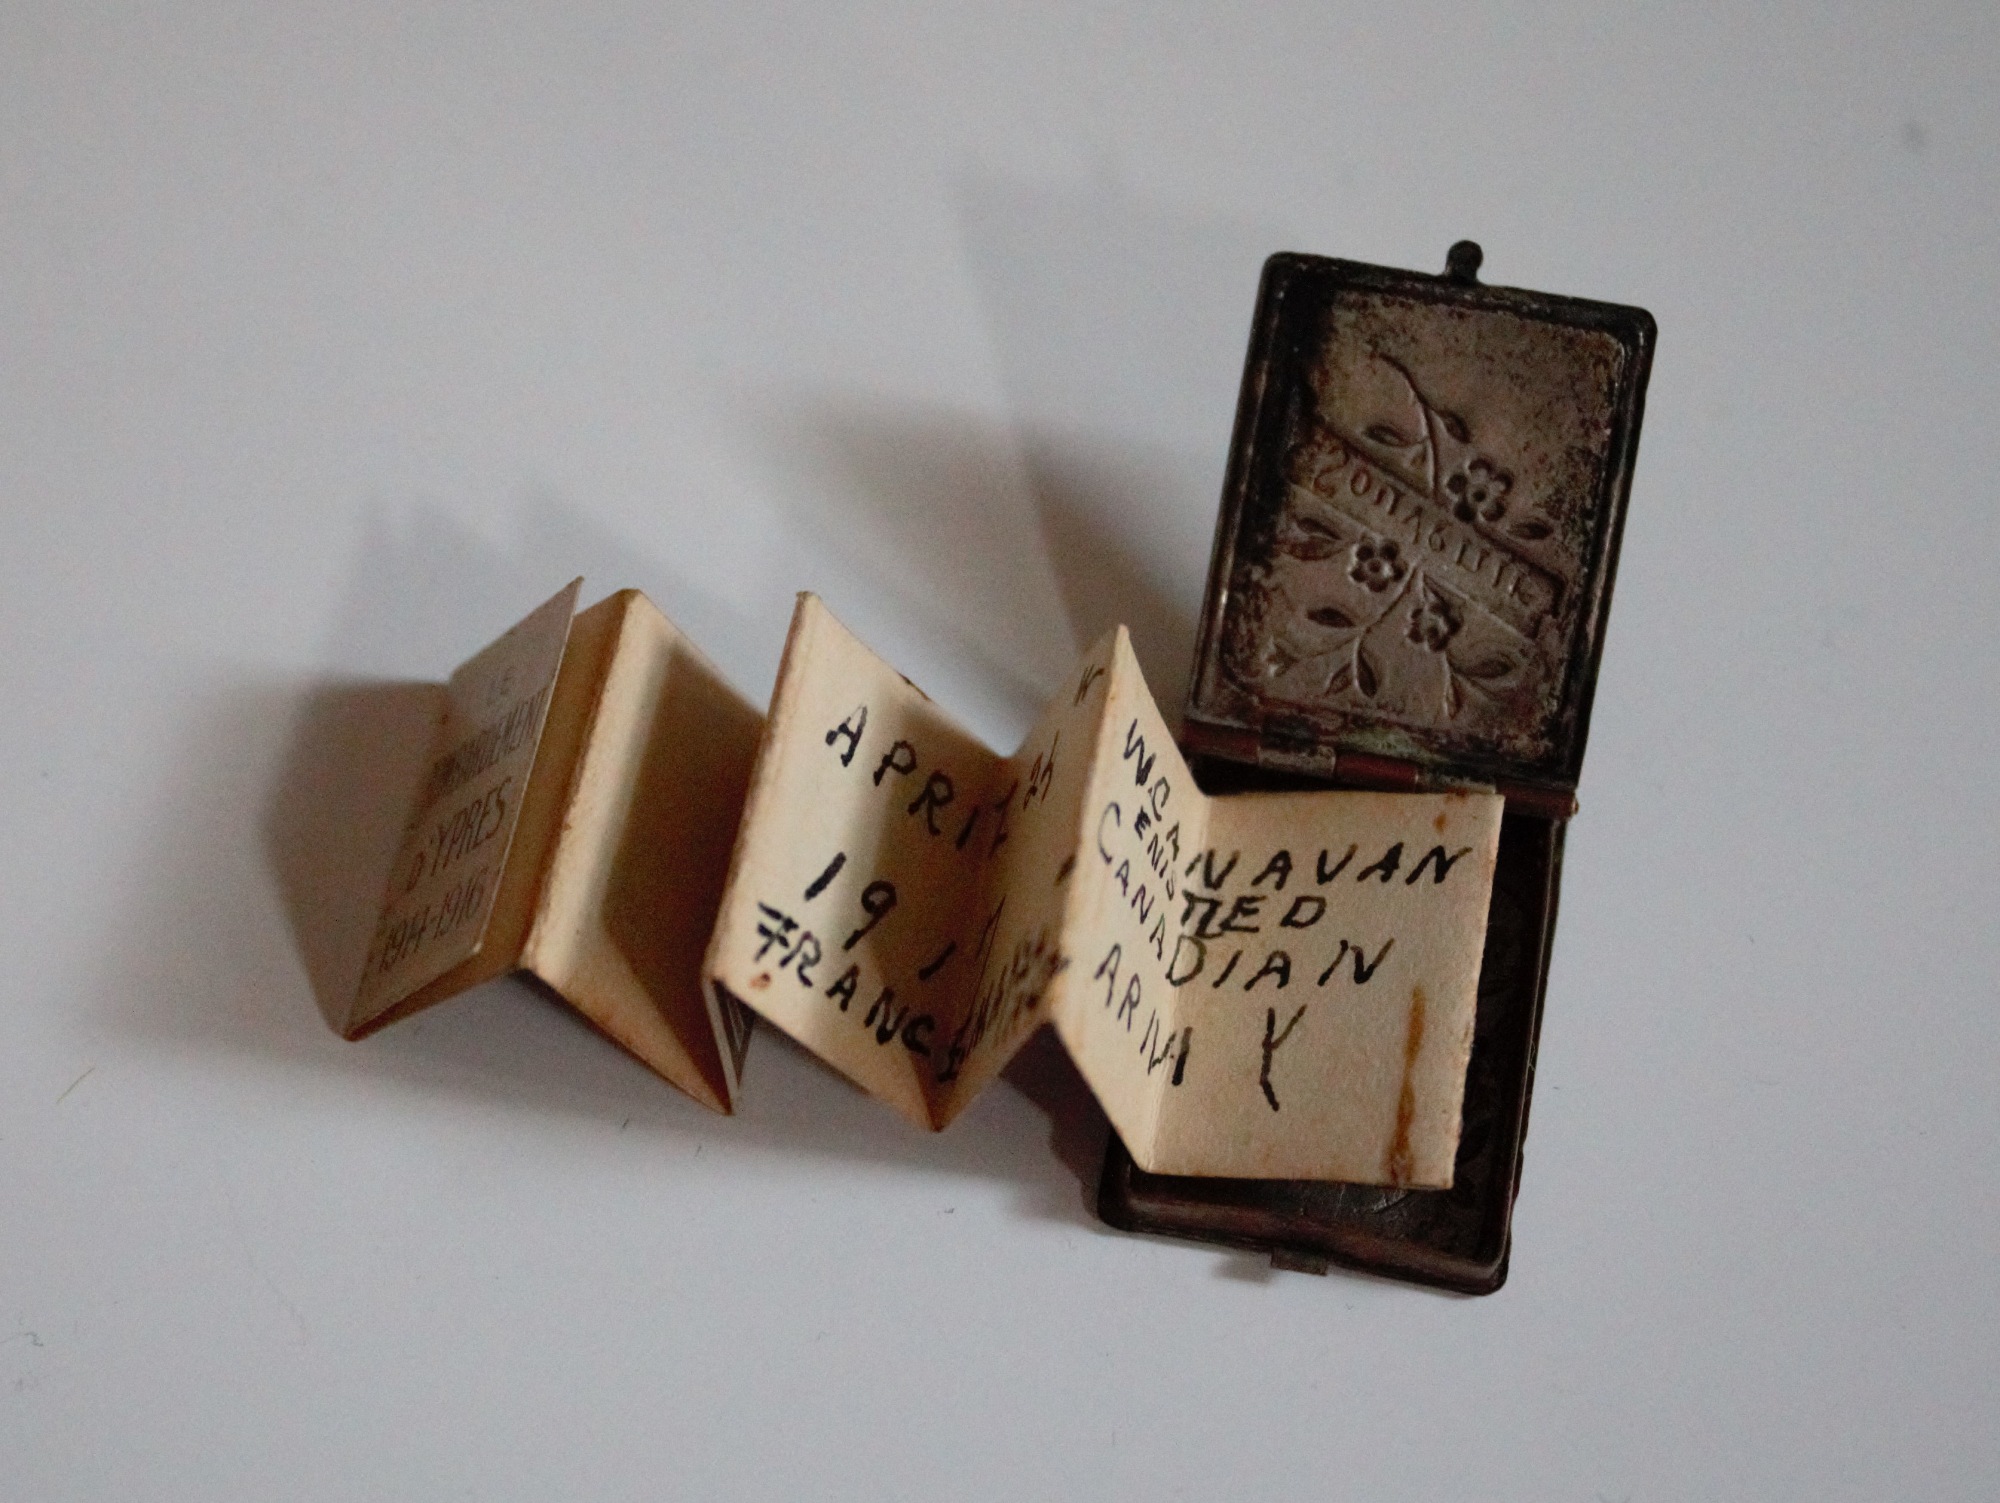 LE
BOMBARDEMENT
D'YPRES
1914-1916
APRIL
191
FRANCE
W CANAVAN
ENLISTED
CANADIAN
ARMY
Souvenir